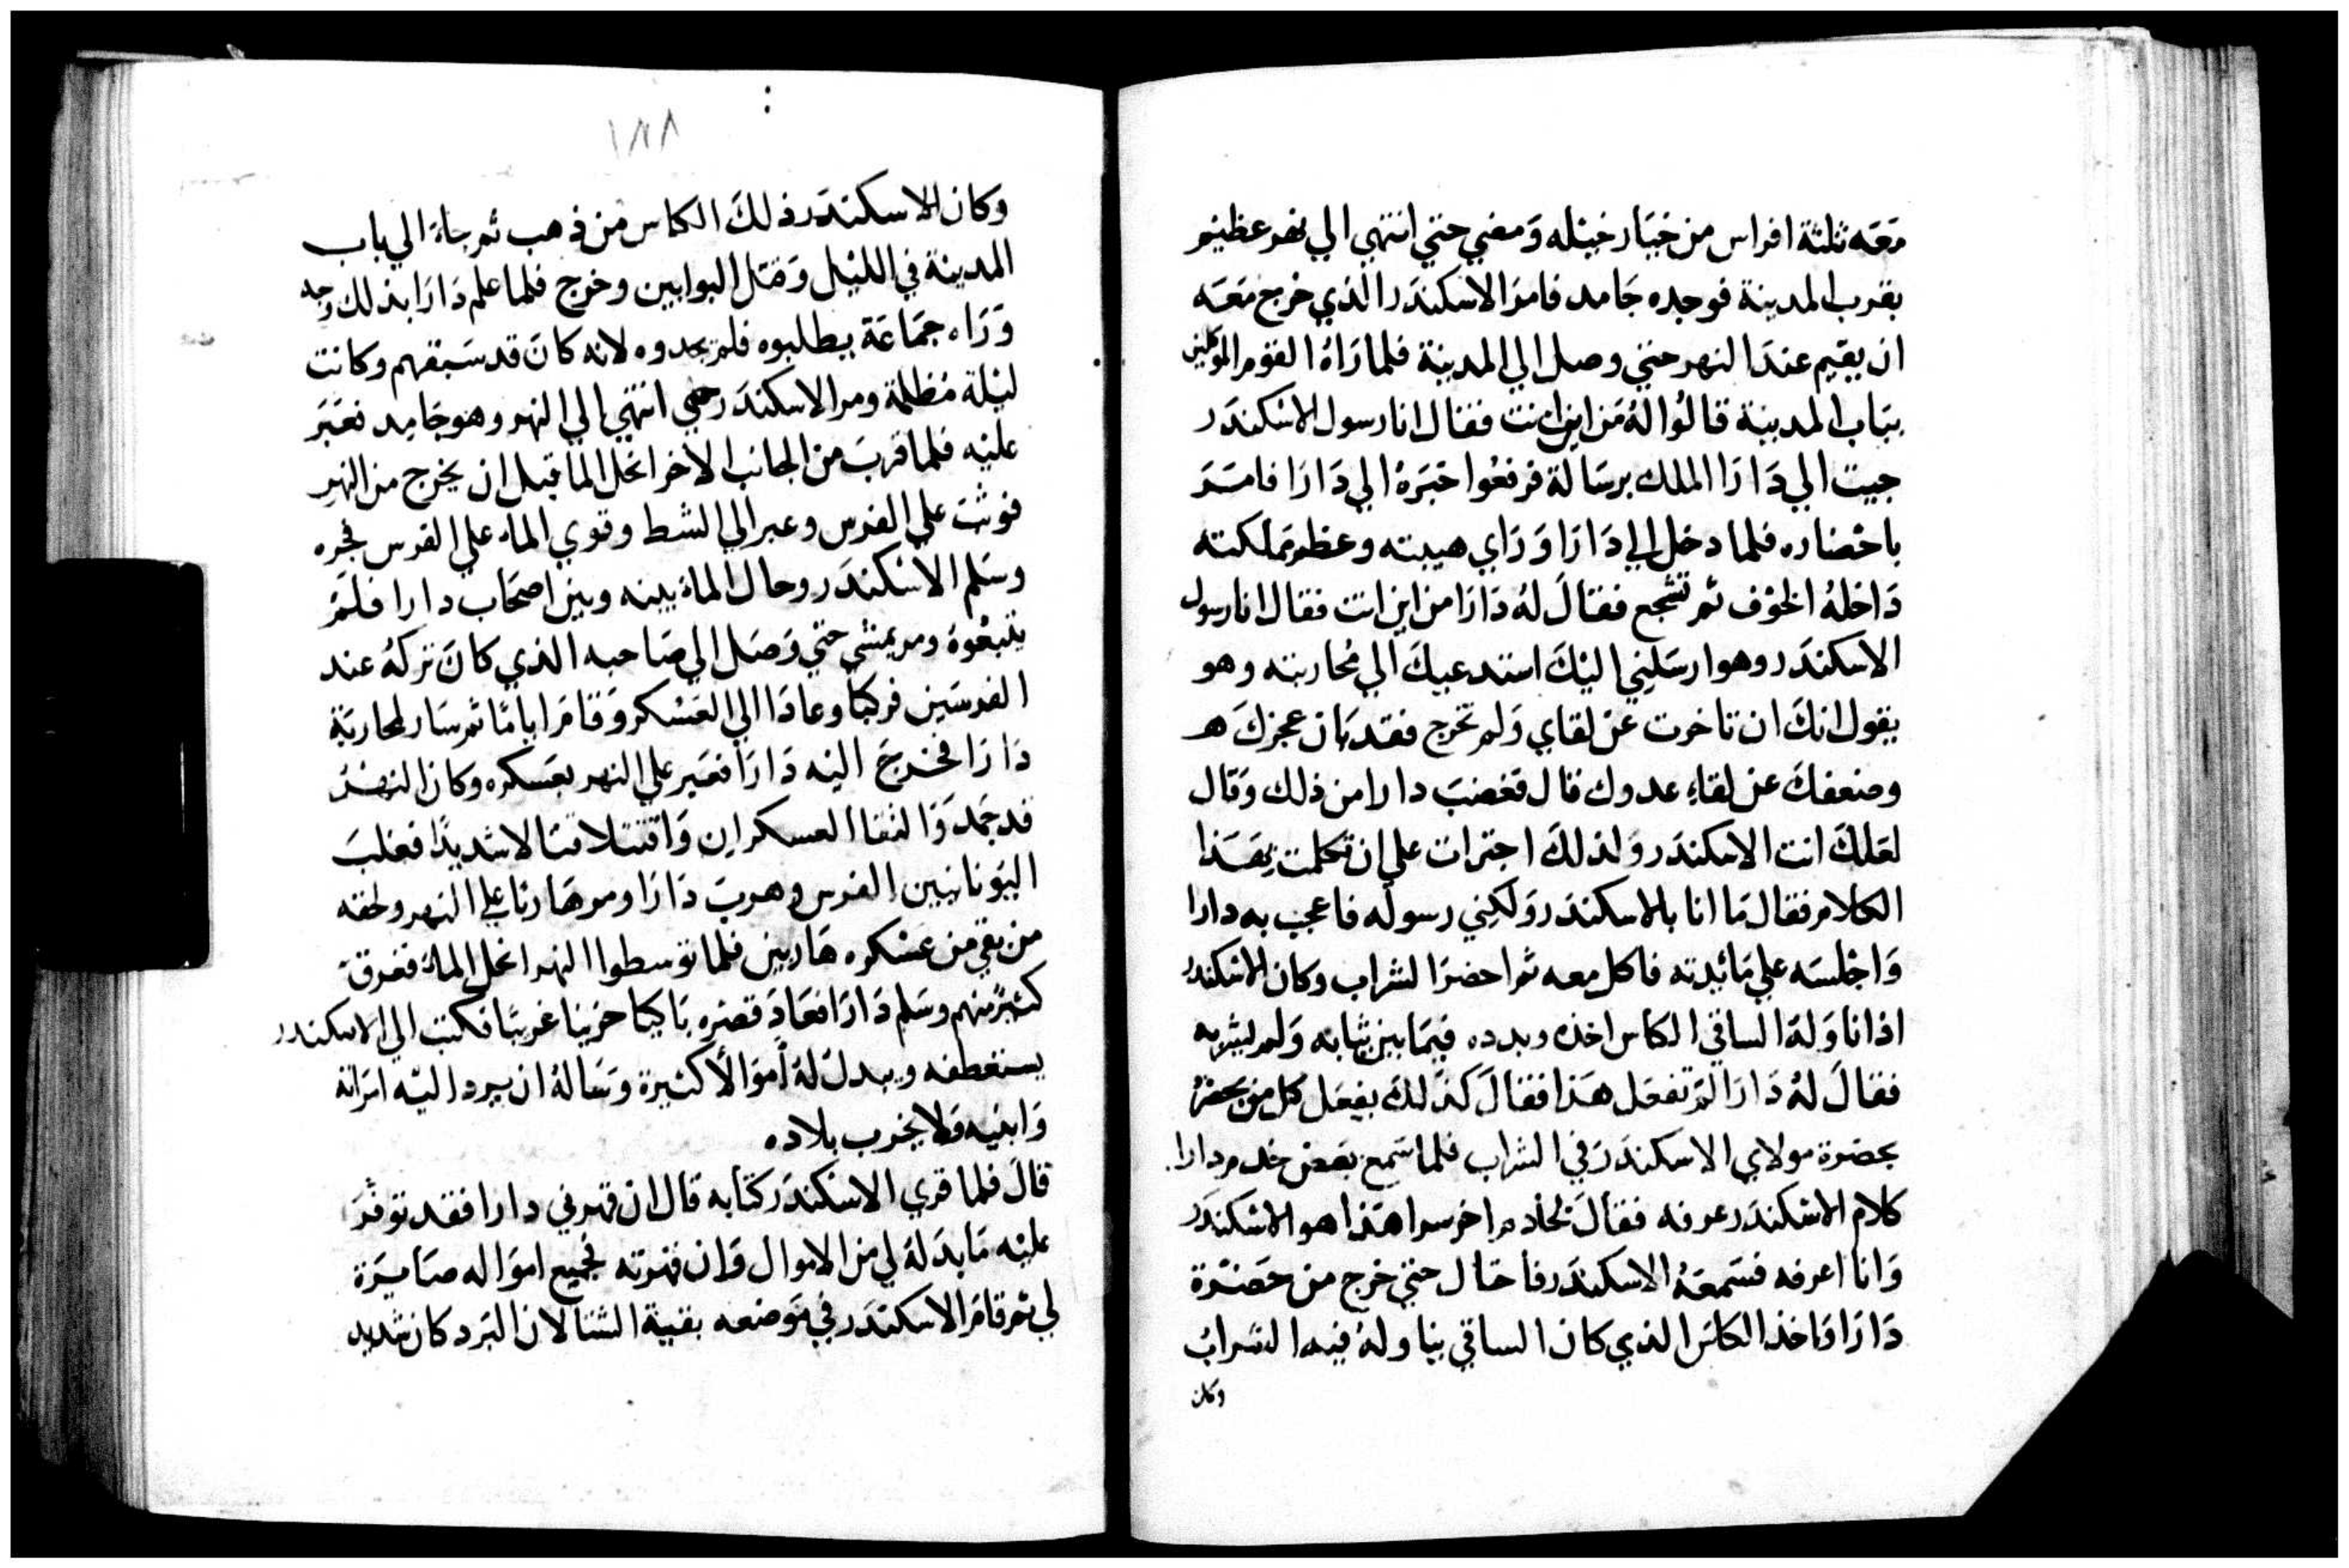 مَعَه ثلثة افراس من خيَار خيْله وَمضي حتي انتهي الي نهر عظيم
بقرب المدينة فوجده جَامد فامرَ الاسكندَر الذي خرج مَعَه
ان يقيم عندَ النهر حتي وصل الي المدينة فلما رَاهُ القوم الموكلين
ببَاب المدينة قالوُا لهُ مَن اين انت فقال انا رسول الاسْكندَر
جيت الي دَارَا الملك برسَالة فرفعُوا خبَرَهُ الي دَارَا فامَرَ
باحْضاره فلما دخل الي دَارَا وَرَاي هيبته وعظم مَملكته
دَاخلهُ الخوْف ثم تشجع فقالَ لهُ دَارَا من اين انت فقال انا رسول
الاسكندَر وهو ارسَلني اليْكَ استدعيكَ الي مُحاربته وهو
يقول انكَ ان تاخرت عَن لقاي وَلم تخرج فقد بَان عجزكَ هـ
وضعفكَ عن لقاءِ عدوك قال فغضبَ دارا من ذلك وَقال
لعَلكَ انت الاسكندَر وَلذلكَ اجترات علي ان تكلمت بهَذا
الكلام فقال مَا انا بالاسكندَر وَلكني رسوله فاعجب به دارا
وَاجْلسَه علي مَائدته فاكل معه ثم احضرَ الشراب وكان الاسْكندر
اذا ناوَلهَ الساقي الكاس اخذه وبدده فيمَا بين ثيابه وَلم يشربه
فقالَ لهُ دَارَا لمَ تفعَل هَذا فقالَ كذلكَ يفعَل كل من يحضرُ
بحضرة مولاي الاسكندَرَ في الشراب فلما سَمع بعَض خدم دارا
كلام الاسْكندَر عرفه فقالَ لخادم اخر سرا هَذا هو الاسْكندَر
وَانا اعرفه فسَمعَهُ الاسكندَر فاحتال حتي خرج من حَضرة
دَارَا وَاخذ الكاسَ الذي كان الساقي يناولهُ فيه الشرابُ
وكان
١٨٨
وَكان الاسكندَر ذلكَ الكاس من ذهب ثم جاءَ الي باب
المدينة في الليْل وَقتل البوابين وخرج فلما علم دَارَا بذلك وجه
وَرَاه جمَاعَة يطلبوه فلم يجدوه لانه كانَ قد سَبقهم وكانت
ليْلة مُظلمة ومر الاسكندَر حتي انتهي الي النهر وهو جَامِد فعَبَرَ
عليْه فلما قربَ من الجانب الاخر انحل الماَ قبل ان يخرج من النهرِ
فوثبَ علي الفرس وعبر الي الشط وقوي الماء علي الفرس فجره
وسَلم الاسْكندَر وحالَ الماءَ بينه وبين اصحَاب دارا فلَمْ
يتبعُوهُ ومر يمشي حتي وَصَل الي صَاحبه الذي كانَ تركهُ عند
الفرسَين فركبا وعادَا الي العَسْكر وَقامَ ايامًا ثم سَار لمحاربَة
دَارَا فخرجَ اليْه دَارَا فعَبر علي النهر بعَسكره وكان النهْرُ
قد جَمدَ وَالتقا العسكران وَاقتتلا قتالا شديدًا فغلبَ
اليوَنانيين الفرس وهربَ دَارَا ومر هَاربًا علي النهر ولحقه
من بقي من عَسْكره هَاربين فلما توسطوا النهر انحل الماءُ فغرقَ
كثيرٌ منهم وسَلم دَارَا فعَادَ قصره بَاكيَا حَزينا غريبًا فكتب الي الاسكندر
يستعْطفه ويبدل لهُ اموَالاً كثيرة وَسَالهُ ان يرد اليْه امرَاته
وَابنيه وَلا يخرب بلاده
قالَ فلما قري الاسْكندَر كتابه قال ان قهرني دارا فقد توفرَ
عليْه مَا بدَلهَ لي من الاموال وَان قهرته فجميع اموَاله صَايرَة
لي ثم قامَ الاسكندَر في موَضعه بقيةَ الشتا لان البَرد كان شديد